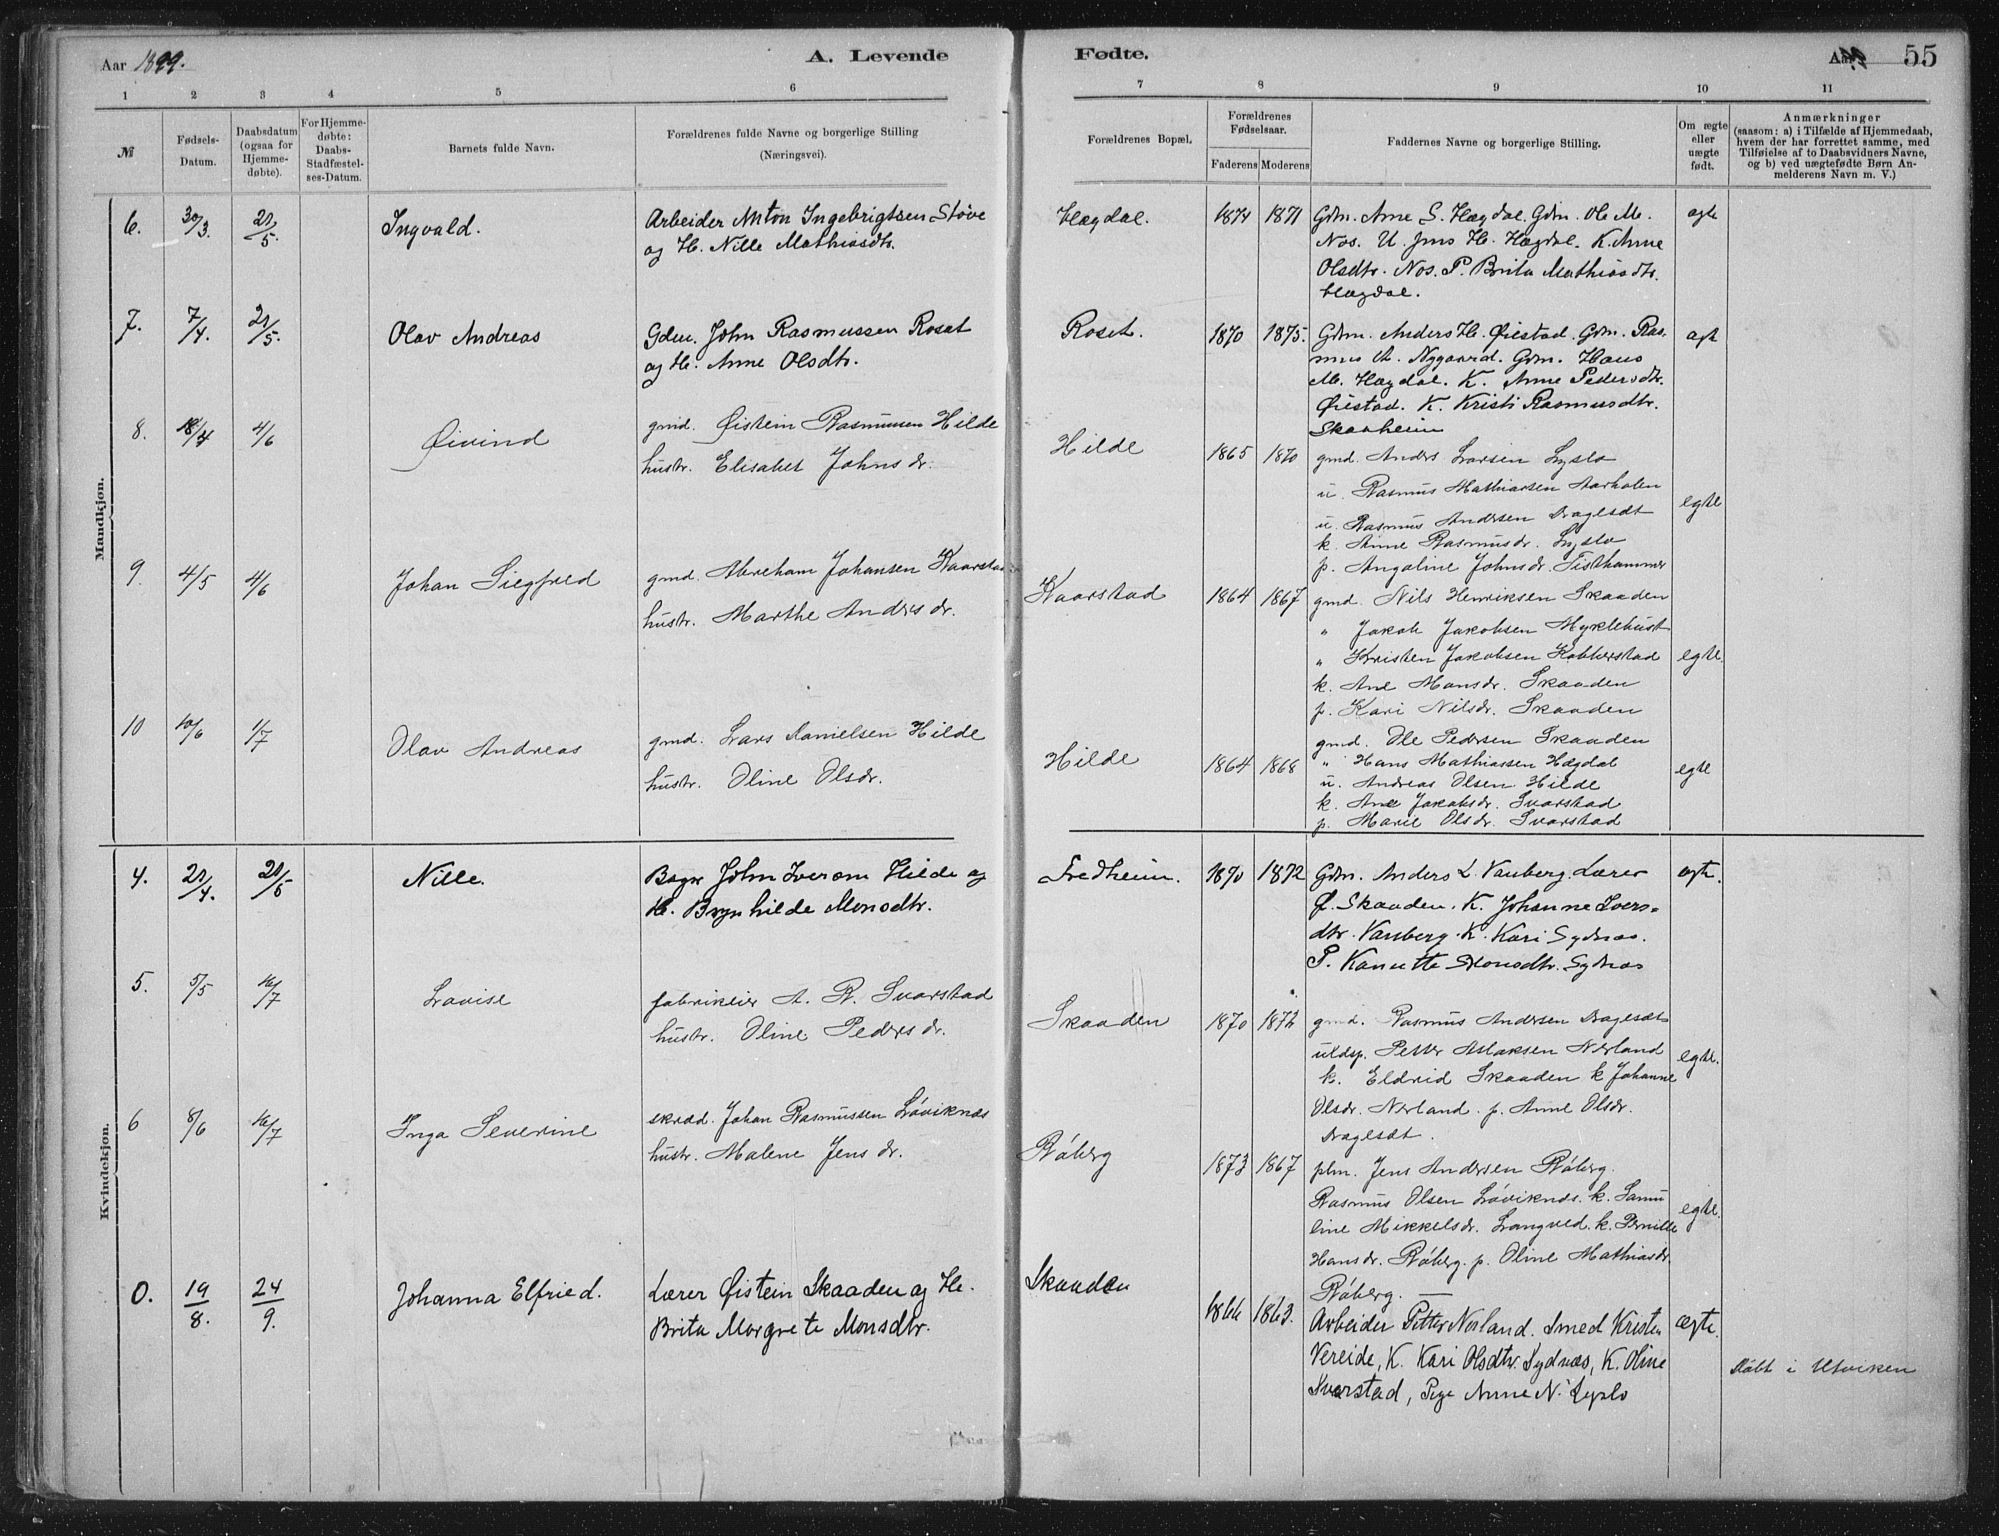 Aar 1899.
A. Levende
Fødte.
Aar 99.
55
1 2 3 4 5 6 7 8 9 10 11
№
Fødsels-
Datum.
Daabsdatum
(ogsaa for
Hjemme-
døbte).
For Hjemme-
døbte:
Daabs-
Stadfæstel-
ses-Datum.
Barnets fulde Navn.
Forældrenes fulde Navne og borgerlige Stilling
(Næringsvei).
Forældrenes Bopæl.
Forældrenes
Fødselsaar.
Faderens
Moderens
Faddernes Navne og borgerlige Stilling.
Om ægte
eller
uægte
født.
Anmærkninger
(saasom: a) i Tilfælde af Hjemmedaab,
hvem der har forrettet samme, med
Tilføielse af to Daabsvidners Navne,
og b) ved uægtefødte Børn An-
melderens Navn m. V.)
Mandkjøn.
6. 30/3. 21/5. Ingvald.
Arbeider Anton Ingebrigtsen Støve
og H. Nille Mathiasdtr.
Hægdal. 1874 1871
Gdm. Arne S. Hægdal. Gdm. Ole M.
Nos. U. Jens H. Hægdal. K. Anne
Olsdtr. Nos. P. Brita Mathiasdtr.
Hægdal.
agte
7. 7/4. 21/5. Olav Andreas
Gdm. John Rasmussen Roset
og H. Anne Olsdtr.
Roset. 1870 1875.
Gdm. Anders H. Øiestad. Gdm. Ras-
mus A. Nygaard. Gdm. Hans
M. Hægdal. K. Anne Pedersdtr.
Øiestad. K. Kristi Rasmusdtr.
Skaaheim
agt
8. 18/4 4/6 Øivind
gmd. Øistein Rasmussen Hilde
hustr. Elisabet Johnsdr.
Hilde 1865 1870
gmd. Anders Larsen Lyslo
u. Rasmus Mathiassen Aarholen
u. Rasmus Andersen Dragesdt
k. Anne Rasmusdr. Lyslo
p. Angoline Johnsdr. Tisthammer
egte
9. 4/5 4/6 Johan Siegfred
gmd. Abreham Johansen Kaarstad
hustr. Marthe Andersdr.
Kaarstad 1864 1867
gmd. Nils Henriksen Skaaden
" Jakob Jakobsen Myklebust
" Kristen Jakobsen Kobberstad
k. Ane Monsdr. Skaaden
p. Kari Nilsdr. Skaaden
egte
10 10/6 1/7 Olav Andreas
gmd. Lars Danielsen Hilde
hustr. Oline Olsdr.
Hilde 1864 1868
gmd. Ole Pedersen Skaaden
" Hans Mathiassen Hægdal
u. Andreas Olsen Hilde
k. Ane Jakobsdr. Svarstad
p. Marie Olsdr. Svarstad
egte
Kvindekjøn.
4. 21/4. 21/5 Nille.
Bager John Iverson Hilde og
H. Brynhilde Monsdtr.
Fredheim. 1870 1872
Gdm. Anders L. Vanberg. Lærer
Ø. Skaaden. K. Johanne Ivers-
dtr. Vanberg. K. Kari Sydnæs.
P. Kanutte Monsdtr. Sydnæs
agte.
5. 5/5 16/7 Lovise
fabrikeier A. R. Svarstad
hustr. Oline Pedersdr.
Skaaden 1870 1872
gmd. Rasmus Andersen Dragesdt
uldsp. Petter Aslaksen Nerland
k. Eldrid Skaaden k Johanne
Olsdr. Nerland. p. Anne Olsdr.
Dragesdt.
egte.
6 8/6 16/7 Inga Severine
skræd. Johan Rasmussen Løviknes
hustr. Malene Jensdr.
Røberg 1873 1867
plm. Jens Andersen Røberg.
Rasmus Olsen Løviknes. k. Samu
line Mikkelsdr. Langved. k. Pernille
Hansdr. Røberg. p. Oline Mathiasdr
Røberg. —
egte.
0. 19/8. 24/9. Johanna Elfried.
Lærer Øistein Skaaden og H.
Brita Margrete Monsdtr.
Skaaden 1866 1863.
Arbeider Petter Norland. Smed Kristen
Vereide, K. Kari Olsdtr. Sydnæs, K. Oline
Svarstad, Pige Anne N. Lyslo
ægte.
Døbt i Utviken